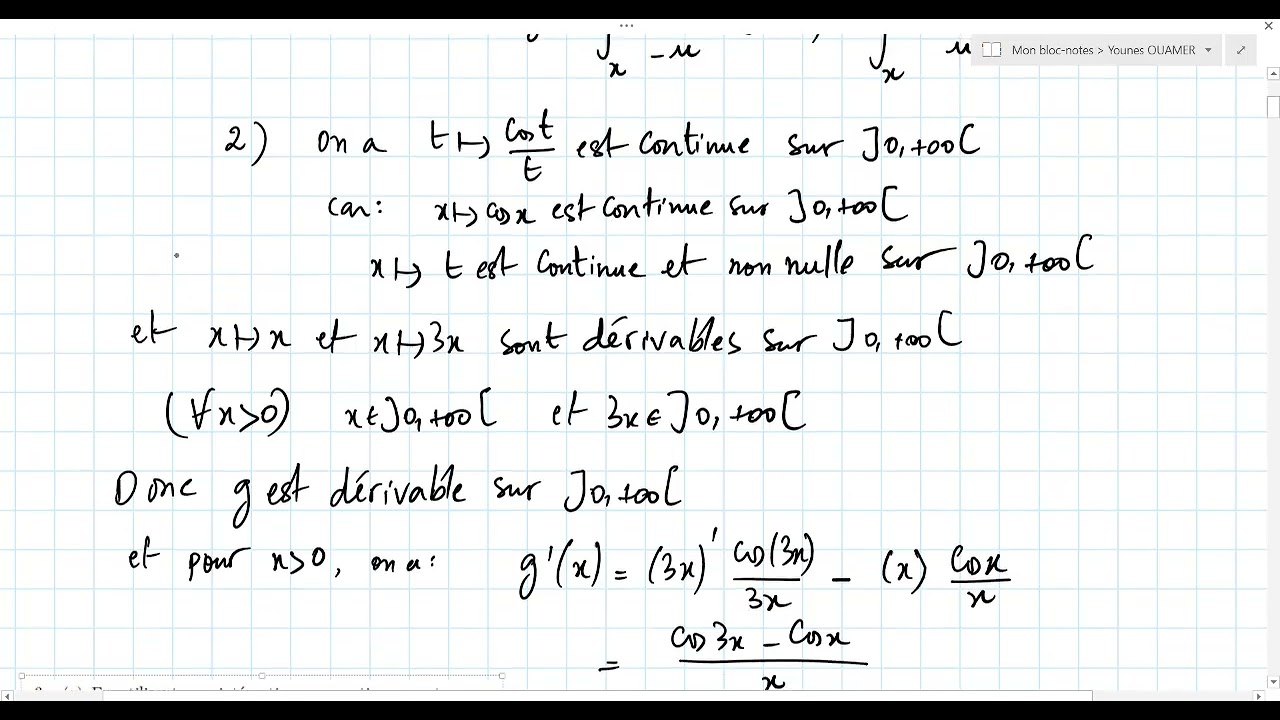 ∫_x -u ∫_x u
Mon bloc-notes > Younes OUAMER
2) on a t ↦ cos t / t est continue sur ]0,+∞[
car: x ↦ cos x est continue sur ]0,+∞[
x ↦ t est continue et non nulle sur ]0,+∞[
et x ↦ x et x ↦ 3x sont dérivables sur ]0,+∞[
(∀x>0) x ∈ ]0,+∞[ et 3x ∈ ]0,+∞[
Donc g est dérivable sur ]0,+∞[
et pour x>0, on a: g'(x) = (3x)' cos(3x) / 3x - (x) cos x / x
= cos 3x - cos x / x